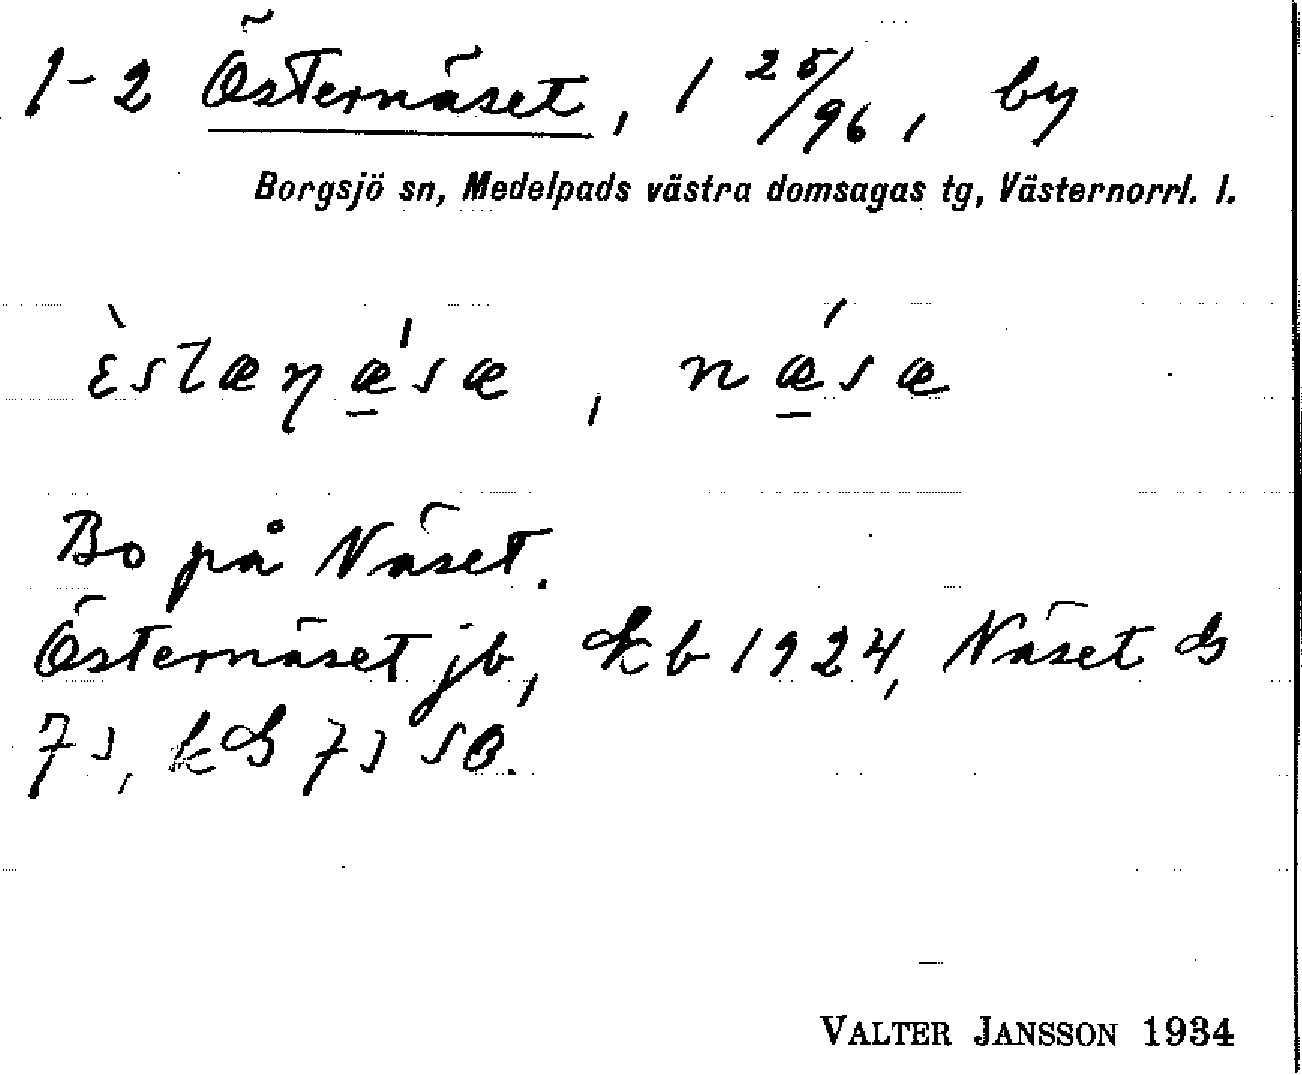 1-2 Östernäset, 1 25/96, by
Borgsjö sn, Medelpads västra domsagas tg, Västernorrl. l.
nǽ̲sæ
Bo på Näset.
Östernäset jb, kb 1924, Näset
VALTER JANSSON 1934